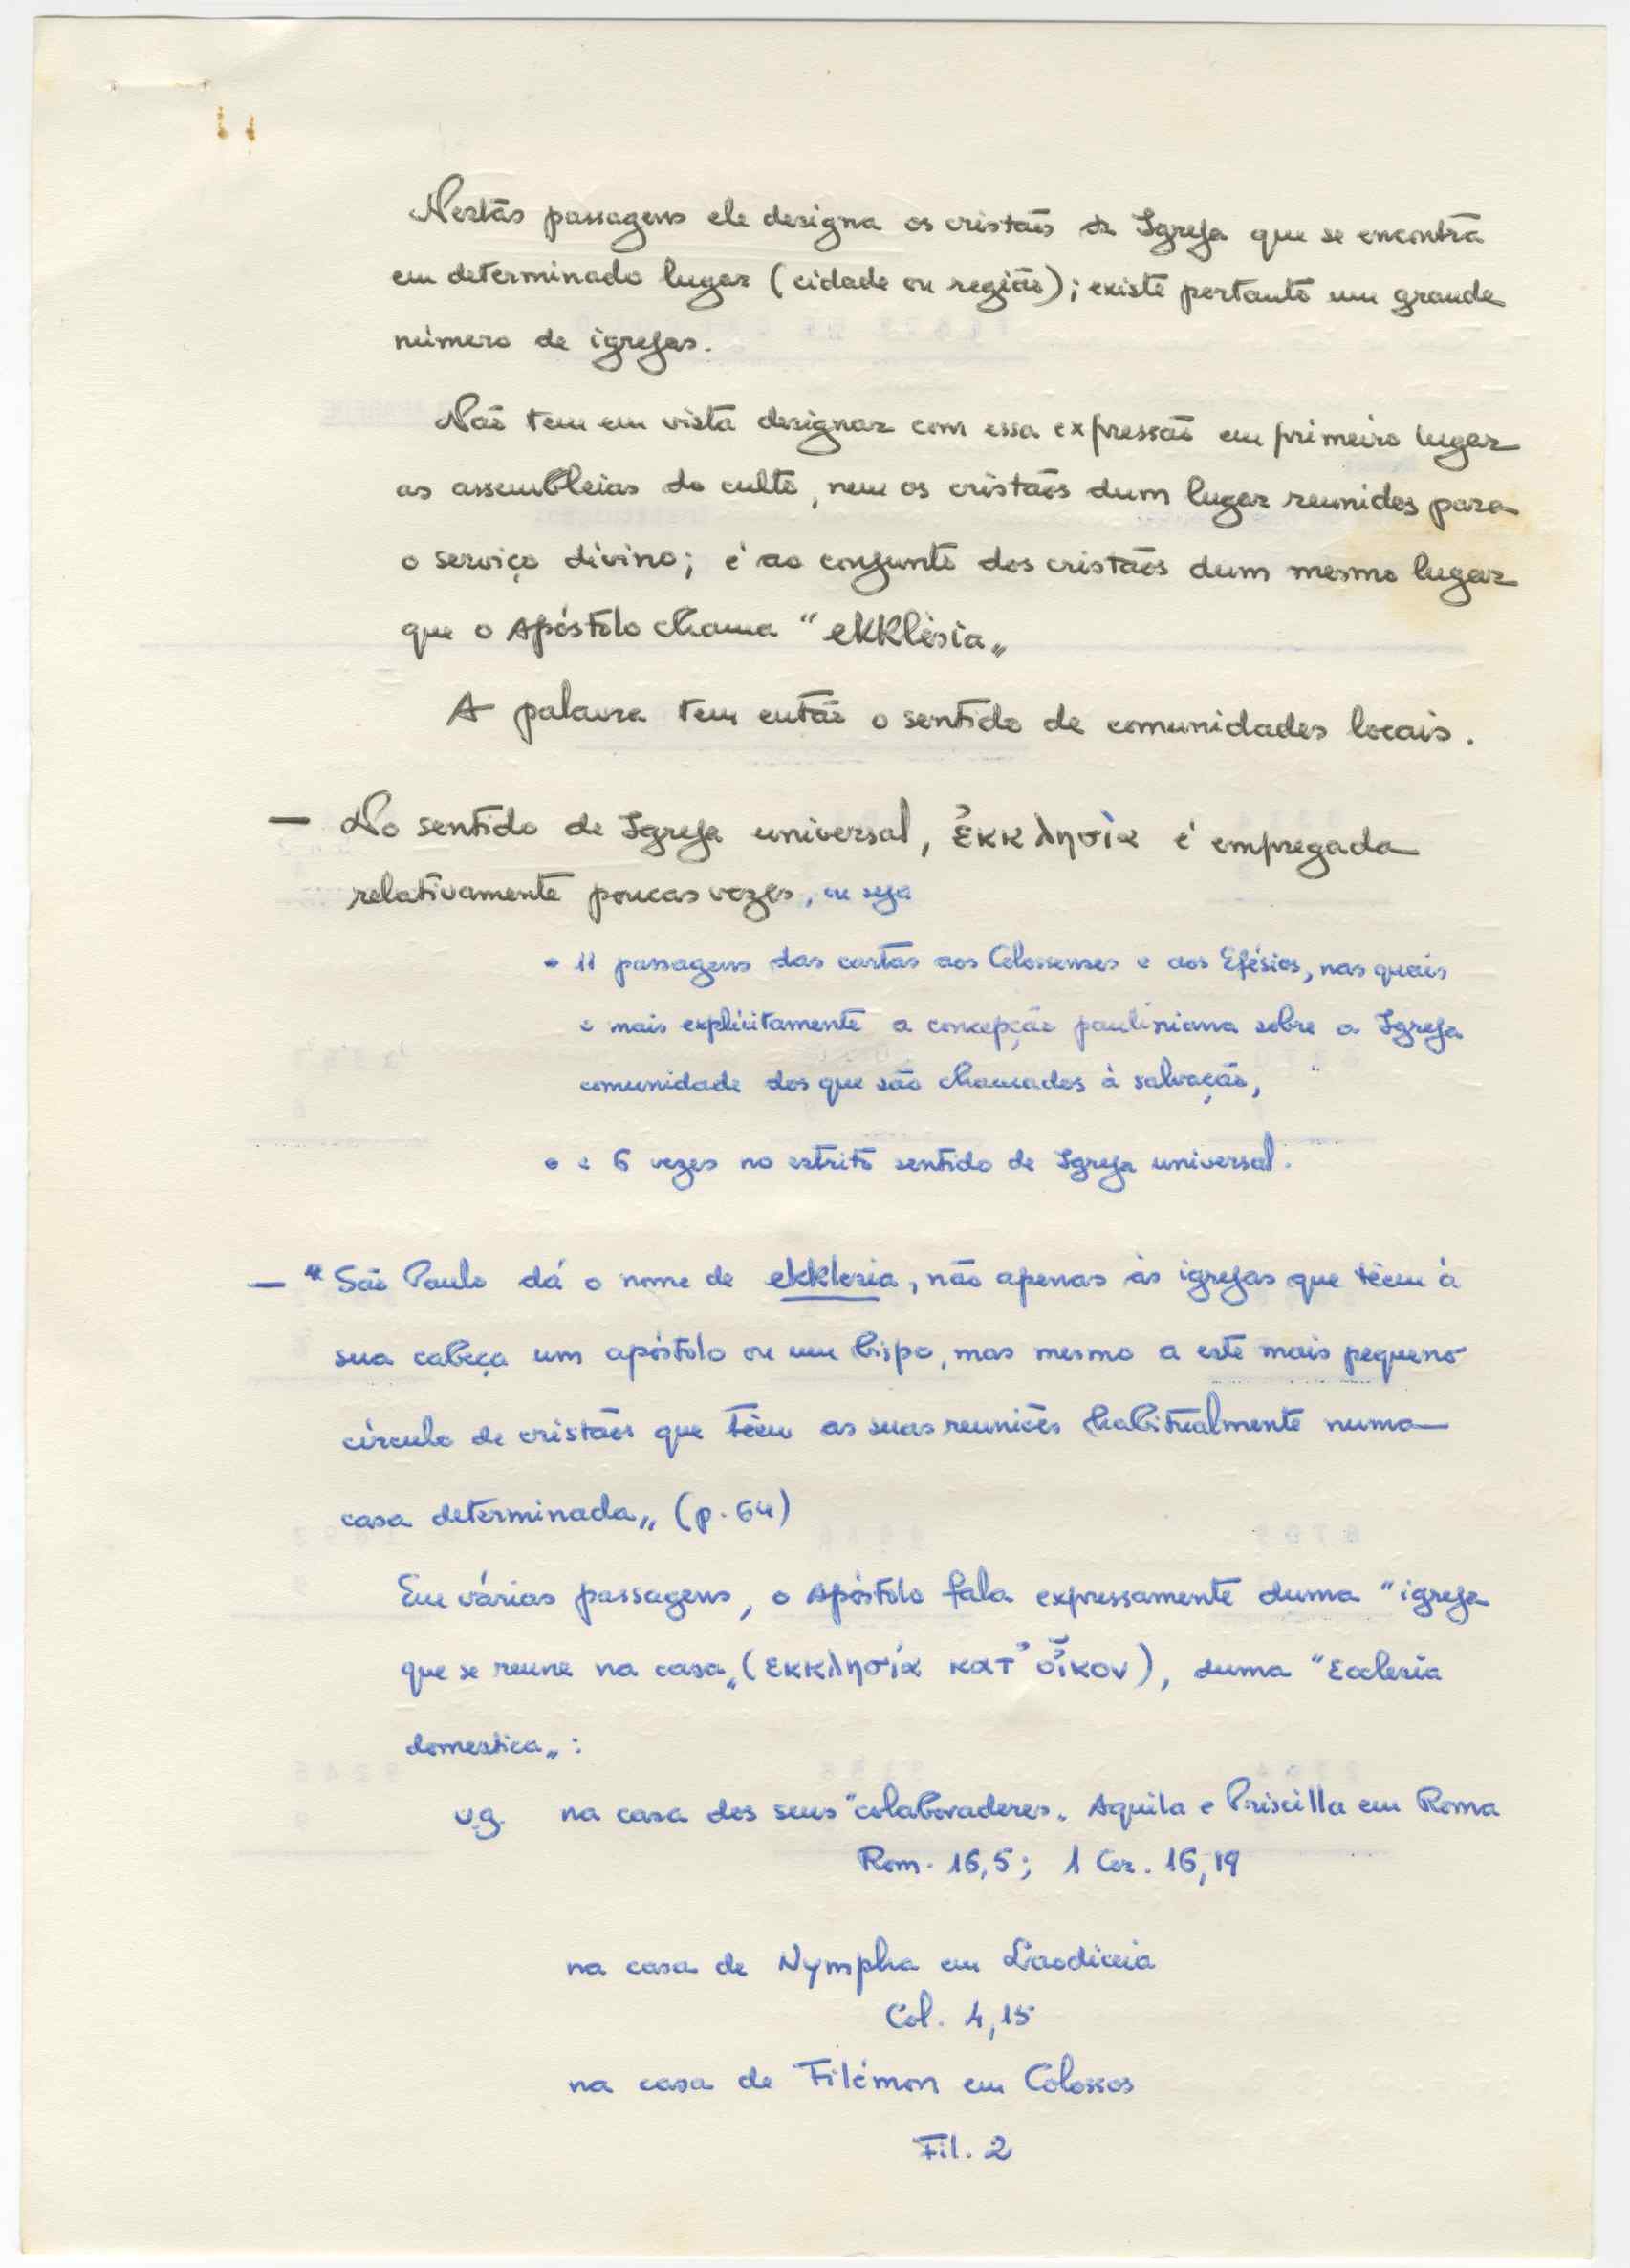 Nestas passagens ele designa os cristãos da Igreja que se encontra
em determinado lugar (cidade ou região); existe portanto um grande
número de igrejas.
Não tem em vista designar com essa expressão em primeiro lugar
as assembleias do culto, nem os cristãos dum lugar reunidos para
o serviço divino; é ao conjunto dos cristãos dum mesmo lugar
que o Apóstolo chama "ekklèsia„
A palavra tem então o sentido de comunidades locais.
— No sentido de Igreja universal, ἐκκλησία é empregada
relativamente poucas vezes, ou seja
• 11 passagens das cartas aos Colossenses e aos Efésios, nas quais
e mais explicitamente a concepção pauliniana sobre a Igreja
comunidade dos que são chamados à salvação,
• e 6 vezes no estrito sentido de Igreja universal.
— "São Paulo dá o nome de ekklesia, não apenas às igrejas que têem à
sua cabeça um apóstolo ou um bispo, mas mesmo a este mais pequeno
círculo de cristãos que têem as suas reuniões habitualmente numa
casa determinada„ (p. 64)
Em várias passagens, o Apóstolo fala expressamente duma "igreja
que se reune na casa„ (εκκλησία κατ' οἶκον), duma "Ecclesia
domestica„:
v.g. na casa dos seus "colaboradores„ Aquila e Priscilla em Roma
Rom. 16,5; 1 Cor. 16,19
na casa de Nympha em Laodiceia
Col. 4,15
na casa de Filémon em Colossos
Fil. 2